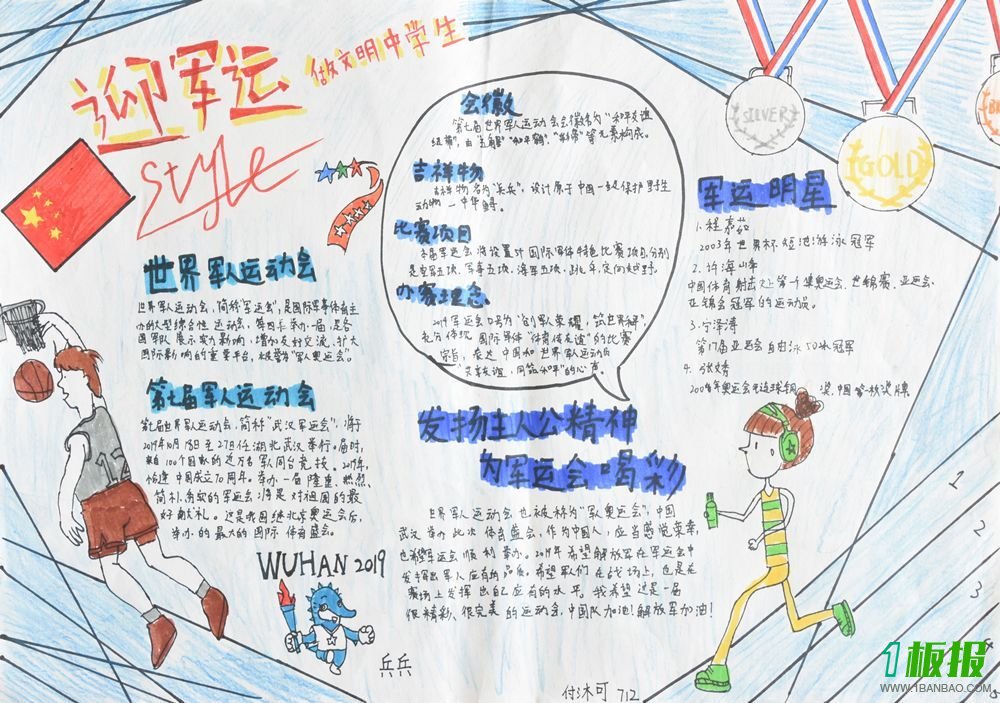 迎军运
做文明中学生
style
世界军人运动会
世界军人运动会，简称"军运会"，是国际军事体育主
办的大型综合性运动会，每四年举办一届，是各
国军队展示实力影响，增加友好交流，扩大
国际影响的重要平台，被誉为"军人奥运会"。
第七届军人运动会
第七届世界军人运动会，简称"武汉军运会"，将于
2019年10月18日至27日在湖北武汉举行。届时，
来自100个国家的近万名军人同台竞技。2019年，
恰逢中国成立70周年。举办一届隆重、热烈、
简朴、务实的军运会将是对祖国的最
好献礼。这是我国继北京奥运会后，
举办的最大的国际体育盛会。
WUHAN 2019
兵兵
会徽
第七届世界军人运动会会徽名为"和平友谊
纽带"，由"五角星""和平鸽""彩带"等元素构成。
吉祥物
吉祥物名为"兵兵"，设计原于中国一级保护野生
动物—中华鲟。
比赛项目
本届军运会将设置对国际军体特色比赛项目，分别
是空军五项、军事五项、海军五项、跳伞、定向越野。
办赛理念
2019军运会口号为"创军人荣耀，筑世界和平"，
充分体现国际军体"体育传友谊"的比赛
宗旨，表达中国和世界军人运动员
"共享友谊，同筑和平"的心声。
发扬主人公精神
为军运会喝彩
世界军人运动会也被称为"军人奥运会"，中国
武汉举办此次体育盛会，作为中国人，应当感觉荣幸，
也希望军运会顺利举办。2019年希望解放军在军运会中
发挥出军人应有的品质。希望军人们在战场上，也是在
赛场上发挥出自己应有的水平。我希望这是一届
很精彩、很完美的运动会，中国队加油！解放军加油！
付沐可 712
SILVER
GOLD
军运明星
1.程嘉茹
2003年世界杯短池游泳冠军
2.许海峰
中国体育射击史上第一个集奥运会、世锦赛、亚运会、
亚锦会冠军的运动员。
3.宁泽涛
第17届亚运会自由泳50米冠军
4. 张文秀
2008年奥运会女链球铜 奖，中国第一枚奖牌
1
2
3
1板报
WWW.1BANBAO.COM